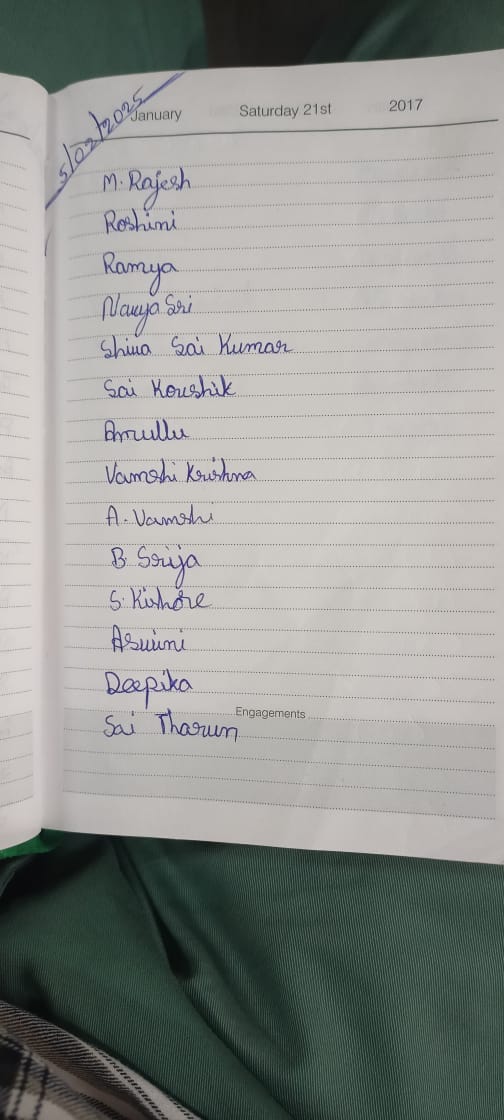 5/02/2025
January Saturday 21st 2017
M. Rajesh
Roshini
Ramya
Navya Sri
Shiva Sai Kumar
Sai Koushik
Amullu
Vamshi Krishna
A. Vamshi
B Srija
S. Kishore
Aswini
Deepika
Engagements
Sai Tharun